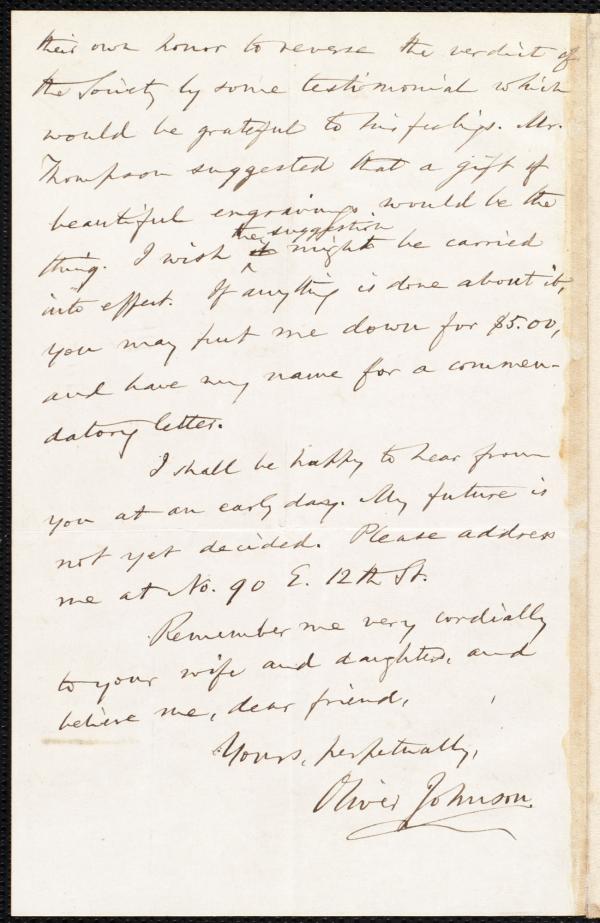 their own honor to reverse the verdict of
the Society by some testimonial which
would be grateful to his feelings. Mr.
Thompson suggested that a gift of
beautiful engravings would be the
thing. I wish the suggestion might be carried
into effect. If anything is done about it,
you may put me down for $5.00,
and have my name for a commen-
datory letter.
I shall be happy to hear from
you at an early day. My future is
not yet decided. Please address
me at No. 90 E. 12th St.
Remember me very cordially
to your wife and daughters, and
believe me, dear friend,
Yours, perpetually,
Oliver Johnson.